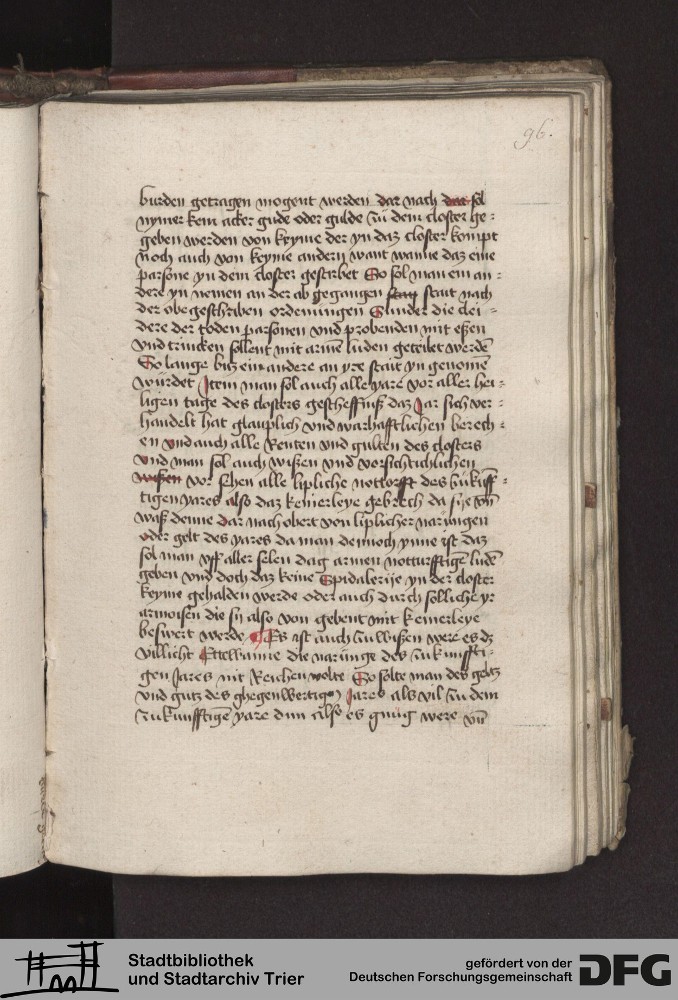 96.
burden getragen mogent werden dar nach dar sol
nymer kein acker gude oder gulde zu dem closter ge=
geben werden von keyme der yn daz closter kompt
noch auch von keyme andern want wanne daz eine
parsone yn dem closter gestirbet So sol man ein an=
dere yn nemen an der ab gegangen stait nach
der obegeschriben ordenungen die clei=
dere der toden parsonen vnd probenden mit eßen
vnd trincken sollent mit armē luden geteilet werdē
So lange biz ein andere an yre stait yn genomē
wurdet Item man sol auch alle yare vor aller hei=
ligen tage des closters gescheffniß daz Jar sich ver=
handelt hat glauplich vnd warhafftlichen berech=
en vnd auch alle Renten vnd gulten des closters
vnd man sol auch wißen vnd vorsichticlichen
wißen vor sehen alle lipliche nottorfft des zukūff=
tigen yares also daz keinerleye gebrech da sye
waß denne dar nach obert von liplicher narungen
oder gelt des yares da man dennoch ynne ist daz
sol man vff aller selen dag armen notturfftigē ludē
geben vnd doch daz keine Spidalerije yn der closter
keyme gehalden werde oder auch durch solliche yr
armoisen die sy also von gebent mit keinerleye
beswert werde Es ist auch zu wißen were es dz
villicht Ettwanne die narunge des zukunffti=
gen Jares nit Reichen wolte So solte man des geltz
vnd gutz des ghegenwertigē Jares als vil zu dem
zukunfftigē yare dun also es gnug were vn̄
Stadtbibliothek
und Stadtarchiv Trier
gefördert von der
Deutschen Forschungsgemeinschaft
DFG